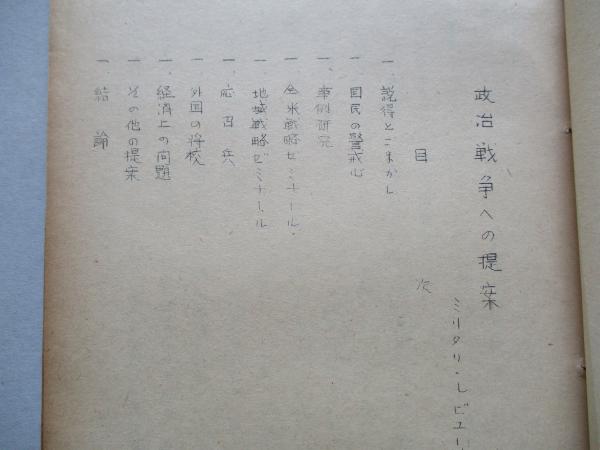 政治戦争への提案
ミリタリ・レビュー
目次
一 説得とごまかし
一 国民の警戒心
一 事例研究
一 全米戦略ゼミナール
一 地域戦略ゼミナール
一 応召兵
一 外国の将校
一 経済上の問題
一 その他の提案
一 結論